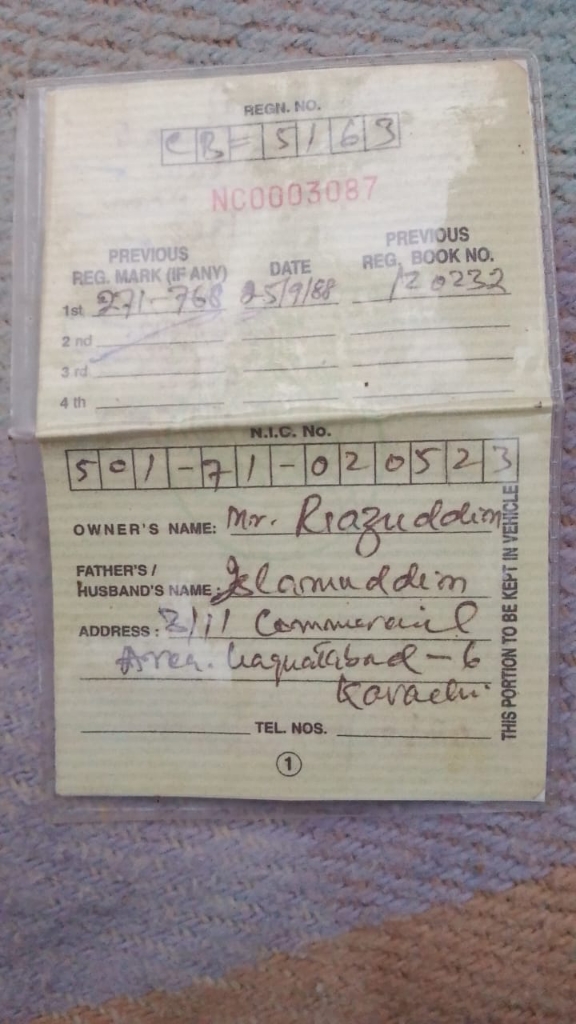 REGN. NO.
CB=5163
NC0003087
PREVIOUS REG. MARK (IF ANY) DATE PREVIOUS REG. BOOK NO.
1st 271-768 25/9/88 120232
2 nd
3 rd
4 th
N.I.C. No.
501-71-020523
OWNER'S NAME: Mr. Riazuddin
FATHER'S /
HUSBAND'S NAME: Islamuddin
ADDRESS: 3/11 Commercial
Area. Liaquatabad - 6
Karachi.
TEL. NOS.
1
THIS PORTION TO BE KEPT IN VEHICLE